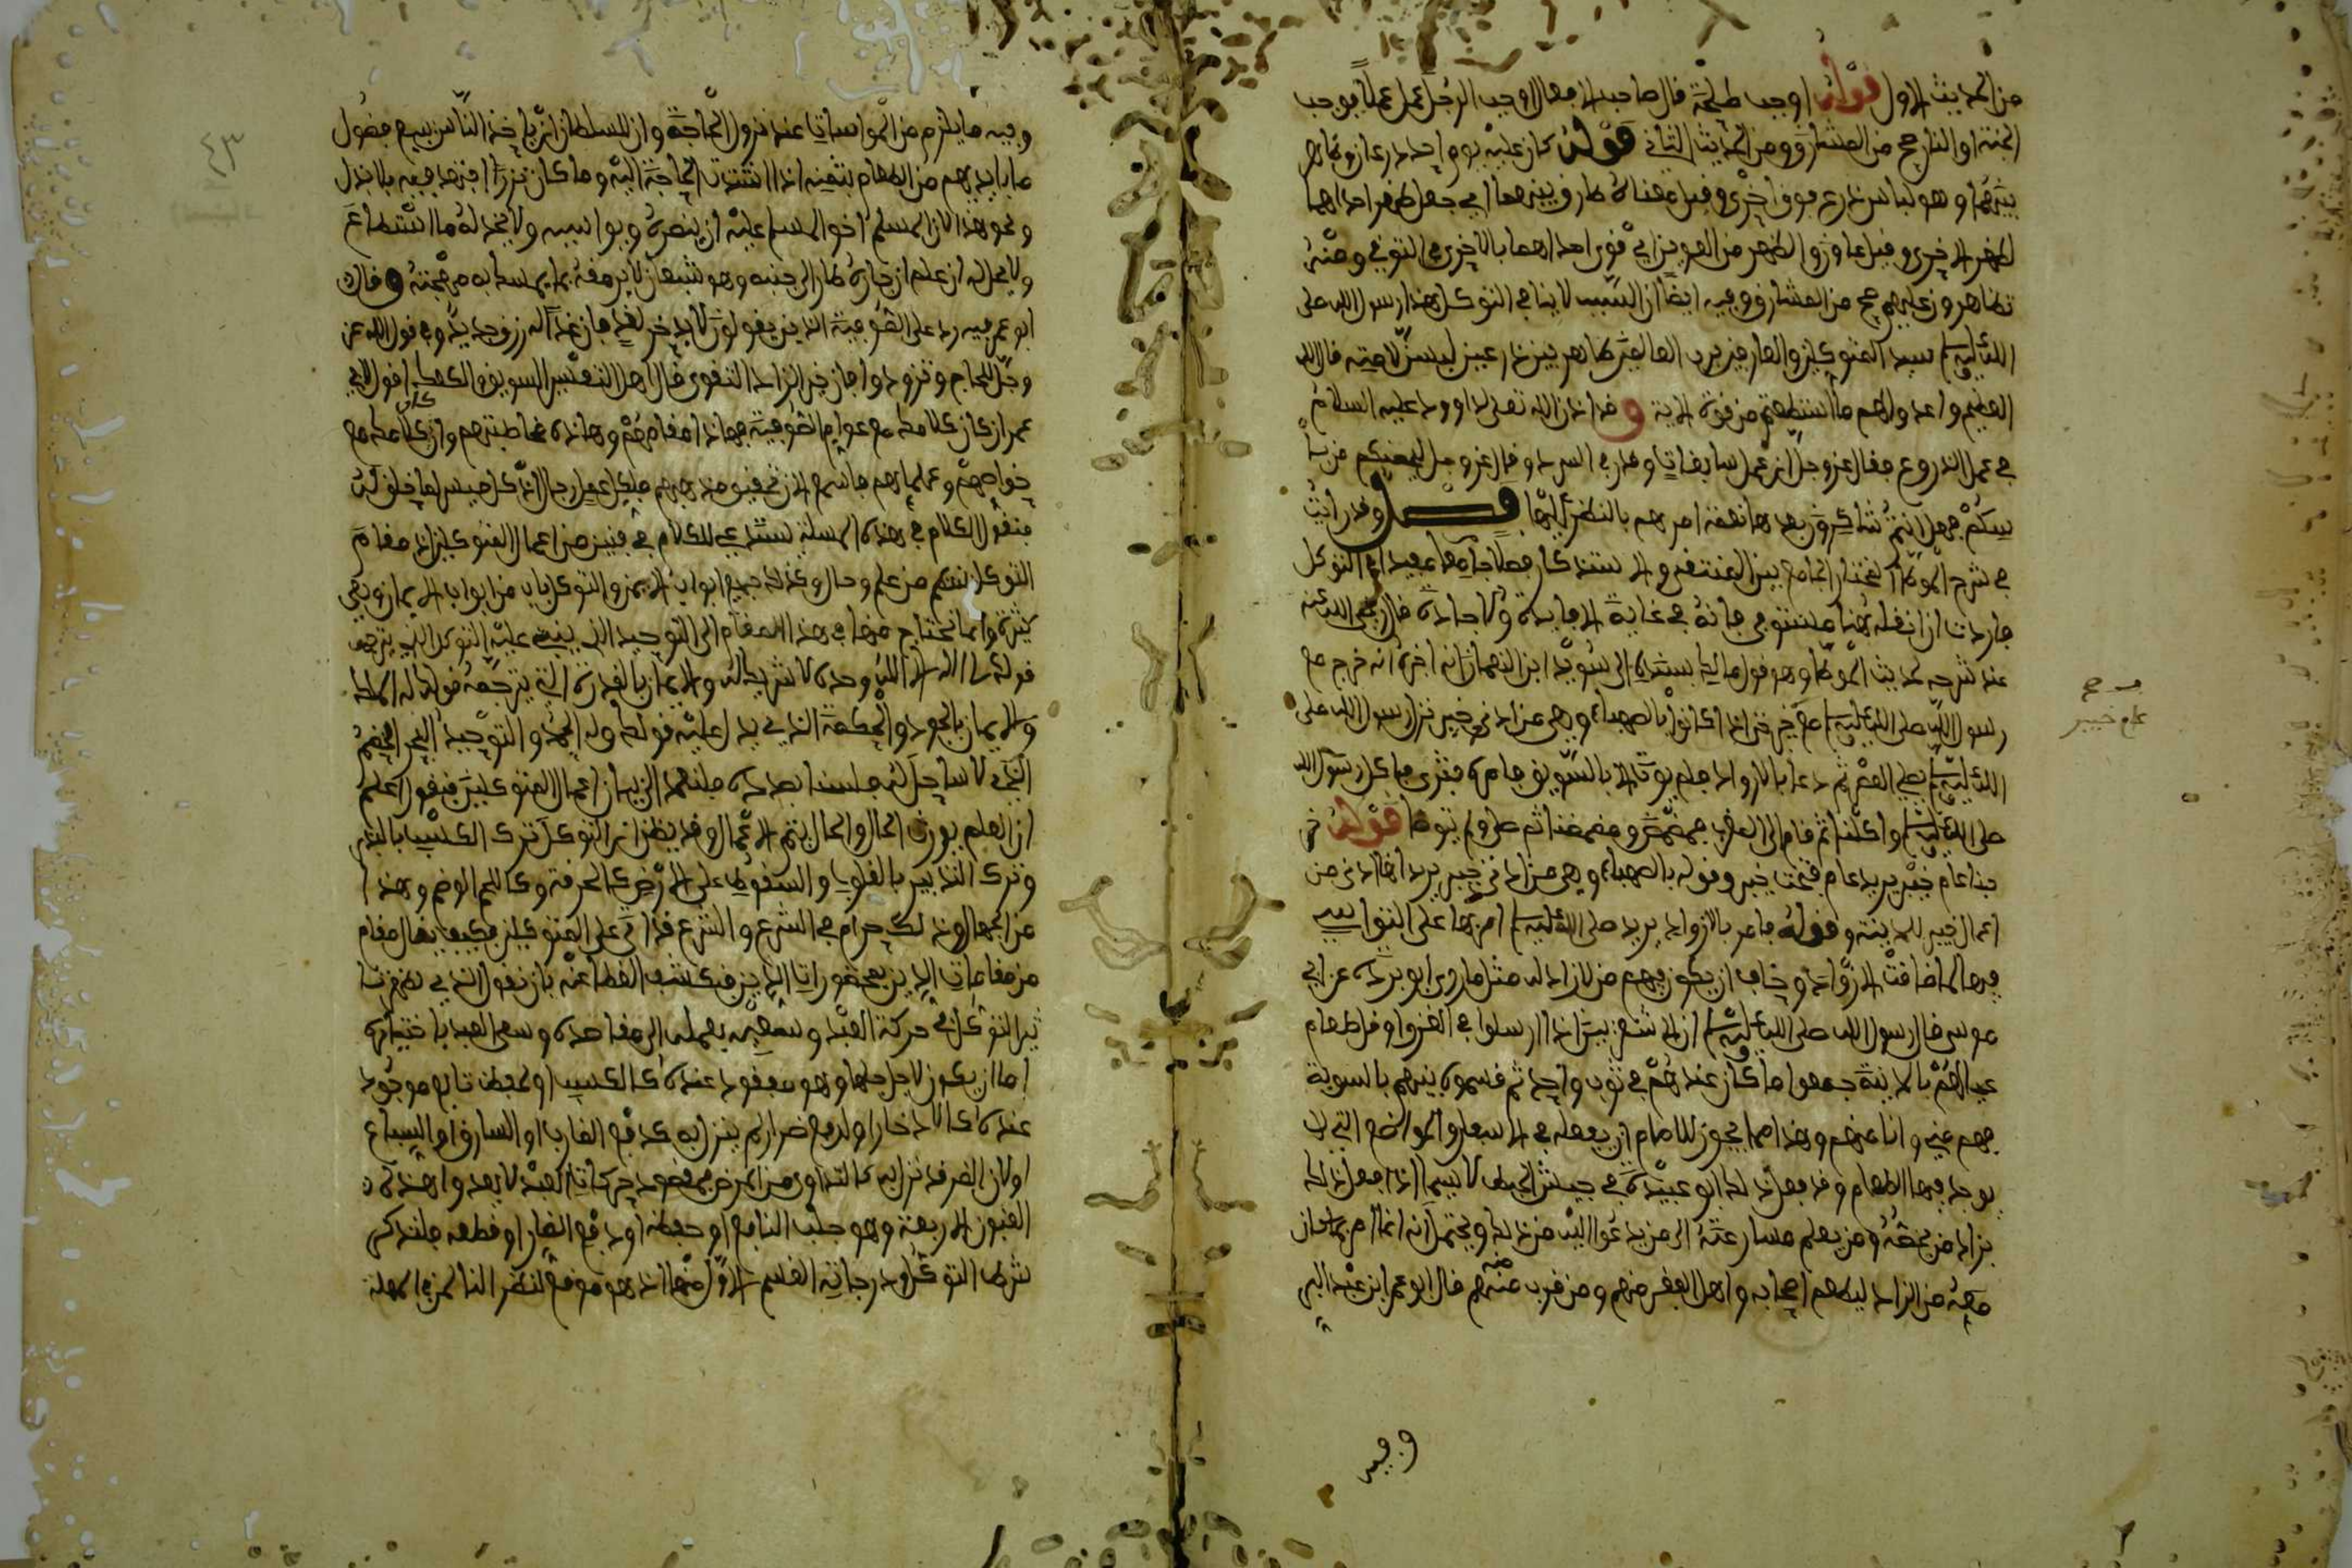 من الحديث الاول قوله اوجب طلحة قال صاحب الافعال اوجب الرجل عمل عملا يوجب
الجنة او النار صح من المشارق ومن الحديث الثاني قوله كان عليه يوم احد درعان ظاهر
بينهما وهو لباس درع فوق اخرى وقيل معناه طارق بينهما اي جعل ظهر احداهما
لظهر الاخرى وقيل عاون والظهر من العوين اي قوى احداهما بالاخرى في التوقي ومنه
تظاهرون عليهم صح من المشارق وفيه ايضا ان السبب لا ينافي التوكل هذا رسول الله صلى
الله عليه وسلم سيد المتوكلين والعارفين برب العالمين ظاهر بين درعين لبس لامته قال الله
العظيم واعدوا لهم ما استطعتم من قوة الاية وقد اذن الله تعلى لداوود عليه السلام
في عمل الدروع فقال عز وجل ان اعمل سابغات وقدر في السرد وقال عز وجل ليحصنكم من با
سكم فهل انتم شاكرون بعد ها نعمة امرهم بالنظر اليها فصل وقد رايت
في شرح الموطا المختار الجامع بين المنتقى والاستذكار فصلا جامعا مفيدا في التوكل
فاردت ان انقله هنا فانه في غاية الافادة والاجادة قال رضي الله عنه
عند شرحه لحديث الموطا وهو قول مالك بسنده الى سويد ابن النعمان انه اخبره انه خرج مع
رسول الله صلى الله عليه وسلم عام خيبر حتى اذا كانوا بالصهباء وهي من ادنى خيبر نزل رسول الله صلى
الله عليه وسلم فصلى العصر ثم دعا بالازواد فلم يوت الا بالسويق فامر به فثرى فاكل رسول الله
صلى الله عليه وسلم واكلنا ثم قام الى المغرب فمضمض ومضمضنا ثم صلى ولم يتوضا قوله خر
جنا عام خيبر يريد عام فتحت خيبر وقوله بالصهباء وهي من ادنى خيبر يريد انها ادنى من
اعمال خيبر للمدينة وقوله فامر بالازواد يريد صلى الله عليه وسلم امر بها على التواسي
فيها لما ضاقت الازواد وخاف ان يكون فيهم من لا زاد له مثل ما روى ابو بردة عن ابي
موسى قال رسول الله صلى الله عليه وسلم ان الاشعريين اذا ارملوا في الغزو او قل طعام
عيالهم بالمدينة جمعوا ما كان عندهم في ثوب واحد ثم قسموه بينهم بالسوية
فهم مني وانا منهم وهذا مما يجوز للامام ان يفعله في الاسفار والمواضع التي لا
يوجد فيها الطعام وقد فعل ذلك ابو عبيدة في جيش الخبط لا سيما اذا فعل ذلك
بزاد من يخصه ومن يعلم مسارعته الى من يدعو اليه من ذلك ويحتمل انه انما امر بما كان
معه من الزاد ليطعم اصحابه واهل الفقر منهم ومن قرب منه منهم قال ابو عمر ابن عبد البر
وفيه
صح
عام خيبر
٤٣
وفيه ما يلزم من المواسات عند نزول الحاجة وان للسلطان ان ياخذ الناس ببيع فضول
ما بايديهم من الطعام بثمنه اذا اشتدت الحاجة اليه وما كان نزرا اجتهد فيه بالبذل
ونحو هذا لان المسلم اخو المسلم عليه ان ينصره ويواسيه ولا يخذله ما استطاع
ولا يحل له ان علم ان جاره طاو الى جنبه وهو شبعان لا يرمقه بما يمسك به مهجته وقال
ابو عمر فيه رد على الصوفية الذين يقولون لا يدخر لغد فان غدا له رزق جديد وفي قول الله عز
وجل للحاج وتزودوا فان خير الزاد التقوى قال اهل التفسير السويق والكعك اقول لابي
عمر ان كان كلامك مع عوام الصوفية فهاذا مقامهم وهاذه مخاطبتهم وان كان كلامك مع
خواصهم وعلمائهم فاسمع الان تحقيق مذهبهم فلكل عمل رجال وكل ميسر لما خلق له
فنقول الكلام في هذه المسلة يستدعي الكلام في فنين من اعمال المتوكلين اذ مقام
التوكل ينتظم من علم وحال وعمل كجميع ابواب الايمن والتوكل باب من ابواب الايمان وهي
كثيرة وانما نحتاج منها في هذا المقام الى التوحيد الذي ينبني عليه التوكل الذي يترجمه
قولك لا اله الا الله وحده لا شريك له والايمان بالقدرة التي يترجمه قولك له الملك
والايمان بالجود والحكمة الذي يدل عليه قولك وله الحمد والتوحيد البحر الخضم
الذي لا ساحل له فلسنا بصدده فلنعمد الى بيان اعمال المتوكلين فنقول اعلم
ان العلم يورث الحال والحال يثمر الاعمال وقد يظن ان التوكل ترك الكسب بالبدن
وترك التدبير بالقلوب والسقوط على الارض كالخرقة وكاللحم الوضم وهذا
من الجهال وذلك حرام في الشرع والشرع قد اثنى على المتوكلين فكيف ينال مقام
من مقامات الدين بمحظورات الدين فنكشف الغطا عنه بان نقول الذي يظهر تا
ثير التوكل في حركة العبد وسعيه بعمله الى مقاصده وسعي العبد باختياره
اما ان يكون لاجل جلب ما هو مفقود عنده كالكسب او لحفظ نافع موجود
عنده كالادخار او لدفع ضرار لم ينزل به كدفع الغارب او السارق او السباع
او لازالة ضر قد نزل به كالتداوي من المرض فمقصود حركات العبد لا يعدوا هذه
الفنون الاربعة وهو جلب النافع او حفظه او دفع الضار او قطعه فلنذكر
شرط التوكل ودرجاته القسم الاول منها اذ هو موقع لنظر الناظر في المسلة